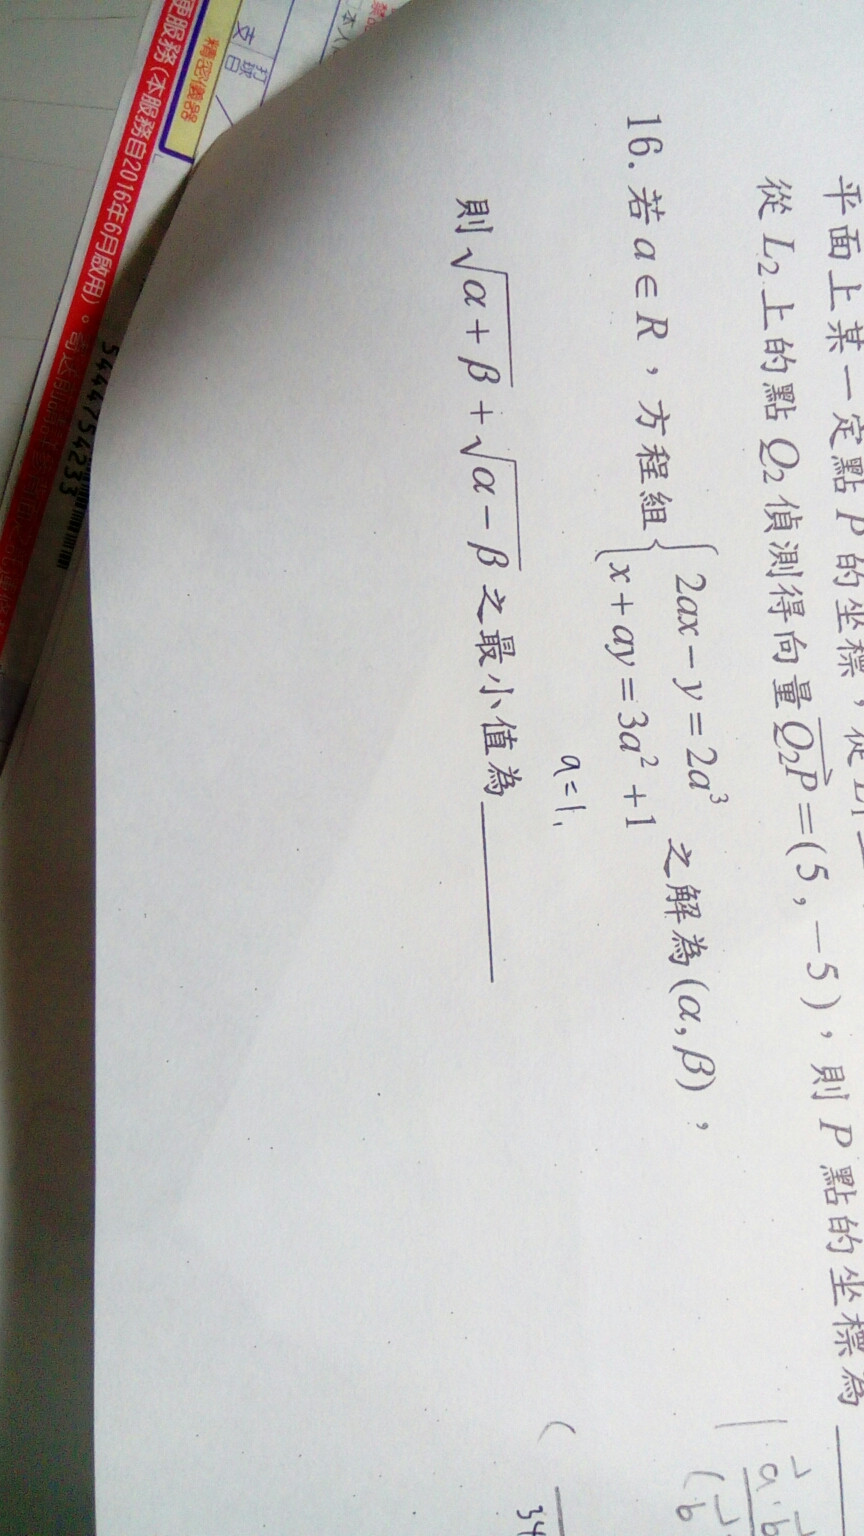 平面上某一定點 P 的坐標，從 L1
從 L₂ 上的點 Q₂ 偵測得向量 Q₂P = (5，−5)，則 P 點的坐標為
16. 若 a ∈ R，方程組 { 2ax − y = 2a³
x + ay = 3a² + 1 之解為 (α, β)，
a=1,
則 √(α + β) + √(α − β) 之最小值為
34
精密儀器
支
打球
日
更服務(本服務自2016年6月啟用)。
5444754233